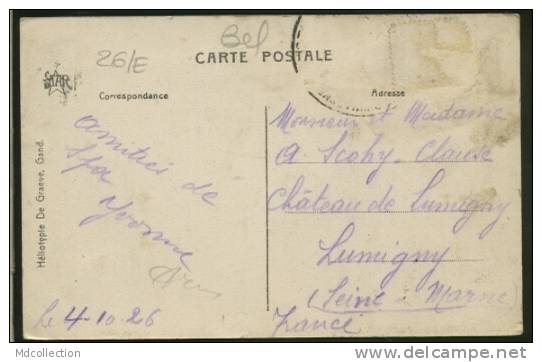 26/E
Bel
CARTE POSTALE
STAR
Correspondance
Adresse
Amitiés de
Spa
Yvonne
le 4-10-26
Monsieur & Madame
A. Scohy-Clause
Château de Lumigny
Lumigny
(Seine & Marne)
France
Héliotypie De Graeve, Gand.
Mdcollection
www.delcampe.net